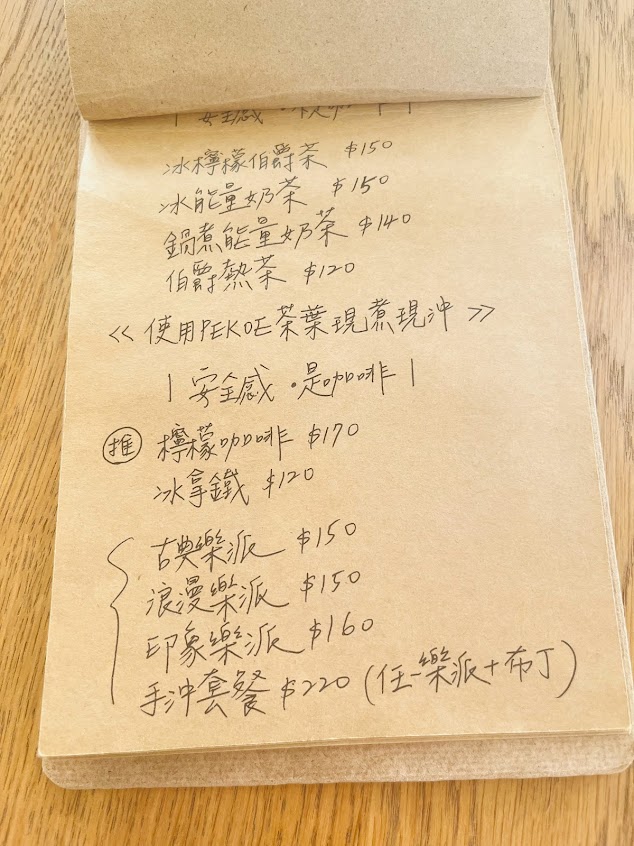 | 安全感 · 是
冰檸檬伯爵茶 $150
冰能量奶茶 $150
鍋煮能量奶茶 $140
伯爵熱茶 $120
<< 使用PEKOE茶葉現煮現沖 >>
| 安全感 · 是咖啡 |
推 檸檬咖啡 $170
冰拿鐵 $120
古典樂派 $150
浪漫樂派 $150
印象樂派 $160
手沖套餐 $220 (任一樂派+布丁)